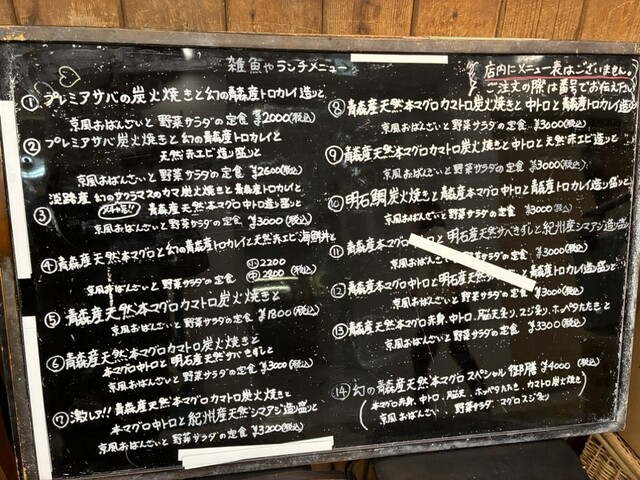 雑魚や ランチメニュー
店内にメニュー表はございません。
ご注文の際は番号でお伝え下さい
① プレミアサバの炭火焼きと幻の青森産トロカレイ造りと
京風おばんざいと野菜サラダの定食 ¥2000(税込)
② プレミアサバ炭火焼きと幻の青森産トロカレイと
天然赤エビ造り盛りと
京風おばんざいと野菜サラダの定食 ¥2600(税込)
淡路産 幻のサクラマスのカマ炭火焼きと青森産トロカレイと
③ 青森産天然本マグロ中トロ造り盛りと
京風おばんざいと野菜サラダの定食 ¥3000(税込)
④ 青森産天然本マグロと幻の青森産トロカレイと天然赤エビ海鮮丼と
京風おばんざいと野菜サラダの定食 小 2200 中 2800 (税込)
⑤ 青森産天然本マグロカマトロ炭火焼きと
京風おばんざいと野菜サラダの定食 ¥1800(税込)
⑥ 青森産天然本マグロカマトロ炭火焼きと
本マグロ中トロと明石産天然サバきずしと
京風おばんざいと野菜サラダの定食 ¥3000(税込)
⑦ 激レア!! 青森産天然本マグロカマトロ炭火焼きと
本マグロ中トロと紀州産天然シマアジ造り盛りと
京風おばんざいと野菜サラダの定食 ¥3200(税込)
⑧ 青森産天然本マグロカマトロ炭火焼きと中トロと青森産トロカレイ造り
京風おばんざいと野菜サラダの定食 ¥3000(税込)
⑨ 青森産天然本マグロカマトロ炭火焼きと中トロと天然赤エビ造り盛と
京風おばんざいと野菜サラダの定食 ¥3000(税込)
⑩ 明石鯛炭火焼きと青森産本マグロ中トロと青森産トロカレイ造り盛りと
京風おばんざいと野菜サラダの定食 ¥3000(税込)
⑪ 青森産本マグロ と明石産天然サバきずしと紀州産シマアジ造り盛りと
京風おばんざいと野菜サラダの定食
⑫ 青森産天然本マグロ中トロと明石産天然サ 青森産トロカレイ造り盛りと
京風おばんざいと野菜サラダの定食 ¥3000(税込)
⑬ 青森産天然本マグロ赤身、中トロ、脳天炙り、スジ炙り、ホッペタたたきと
京風おばんざいと野菜サラダの定食 ¥3300(税込)
⑭ 幻の青森産天然本マグロスペシャル御膳 ¥4000(税込)
(本マグロ赤身、中トロ、脳天、ホッペタたたき、カマトロ炭火焼き
京風おばんざい、野菜サラダ マグロスジ炙り)